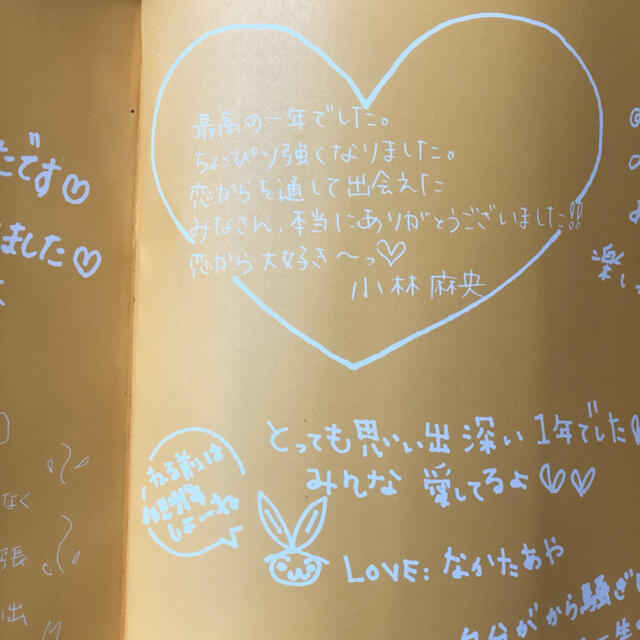 たです♡
ました♡
なく
張
出
最高の一年でした。
ちょっぴり強くなりました。
恋からを通して出会えた
みなさん、本当にありがとうございました!!
恋から大好き〜っ♡
小林麻央
とっても思い出深い1年でした
みんな愛してるよ♡♡
LOVE: なかたあや
自分がから騒ぎ
楽し